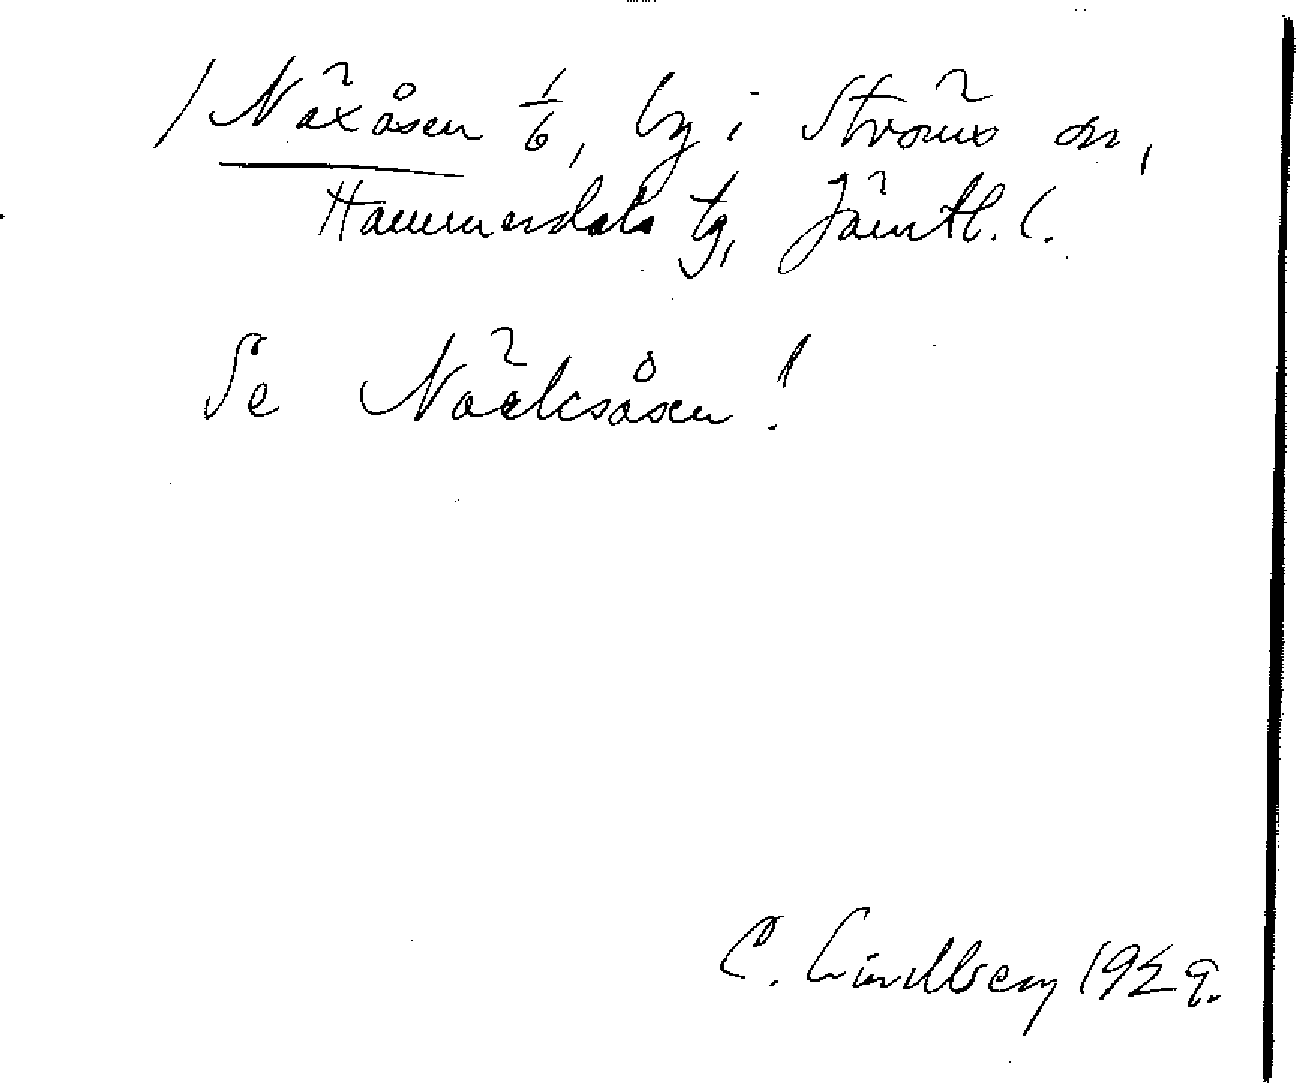 / Näxåsen 1/6, by i Ströms sn,
Hammerdals tg, Jämtl. l.
Se Näcksåsen!
C. Lindberg